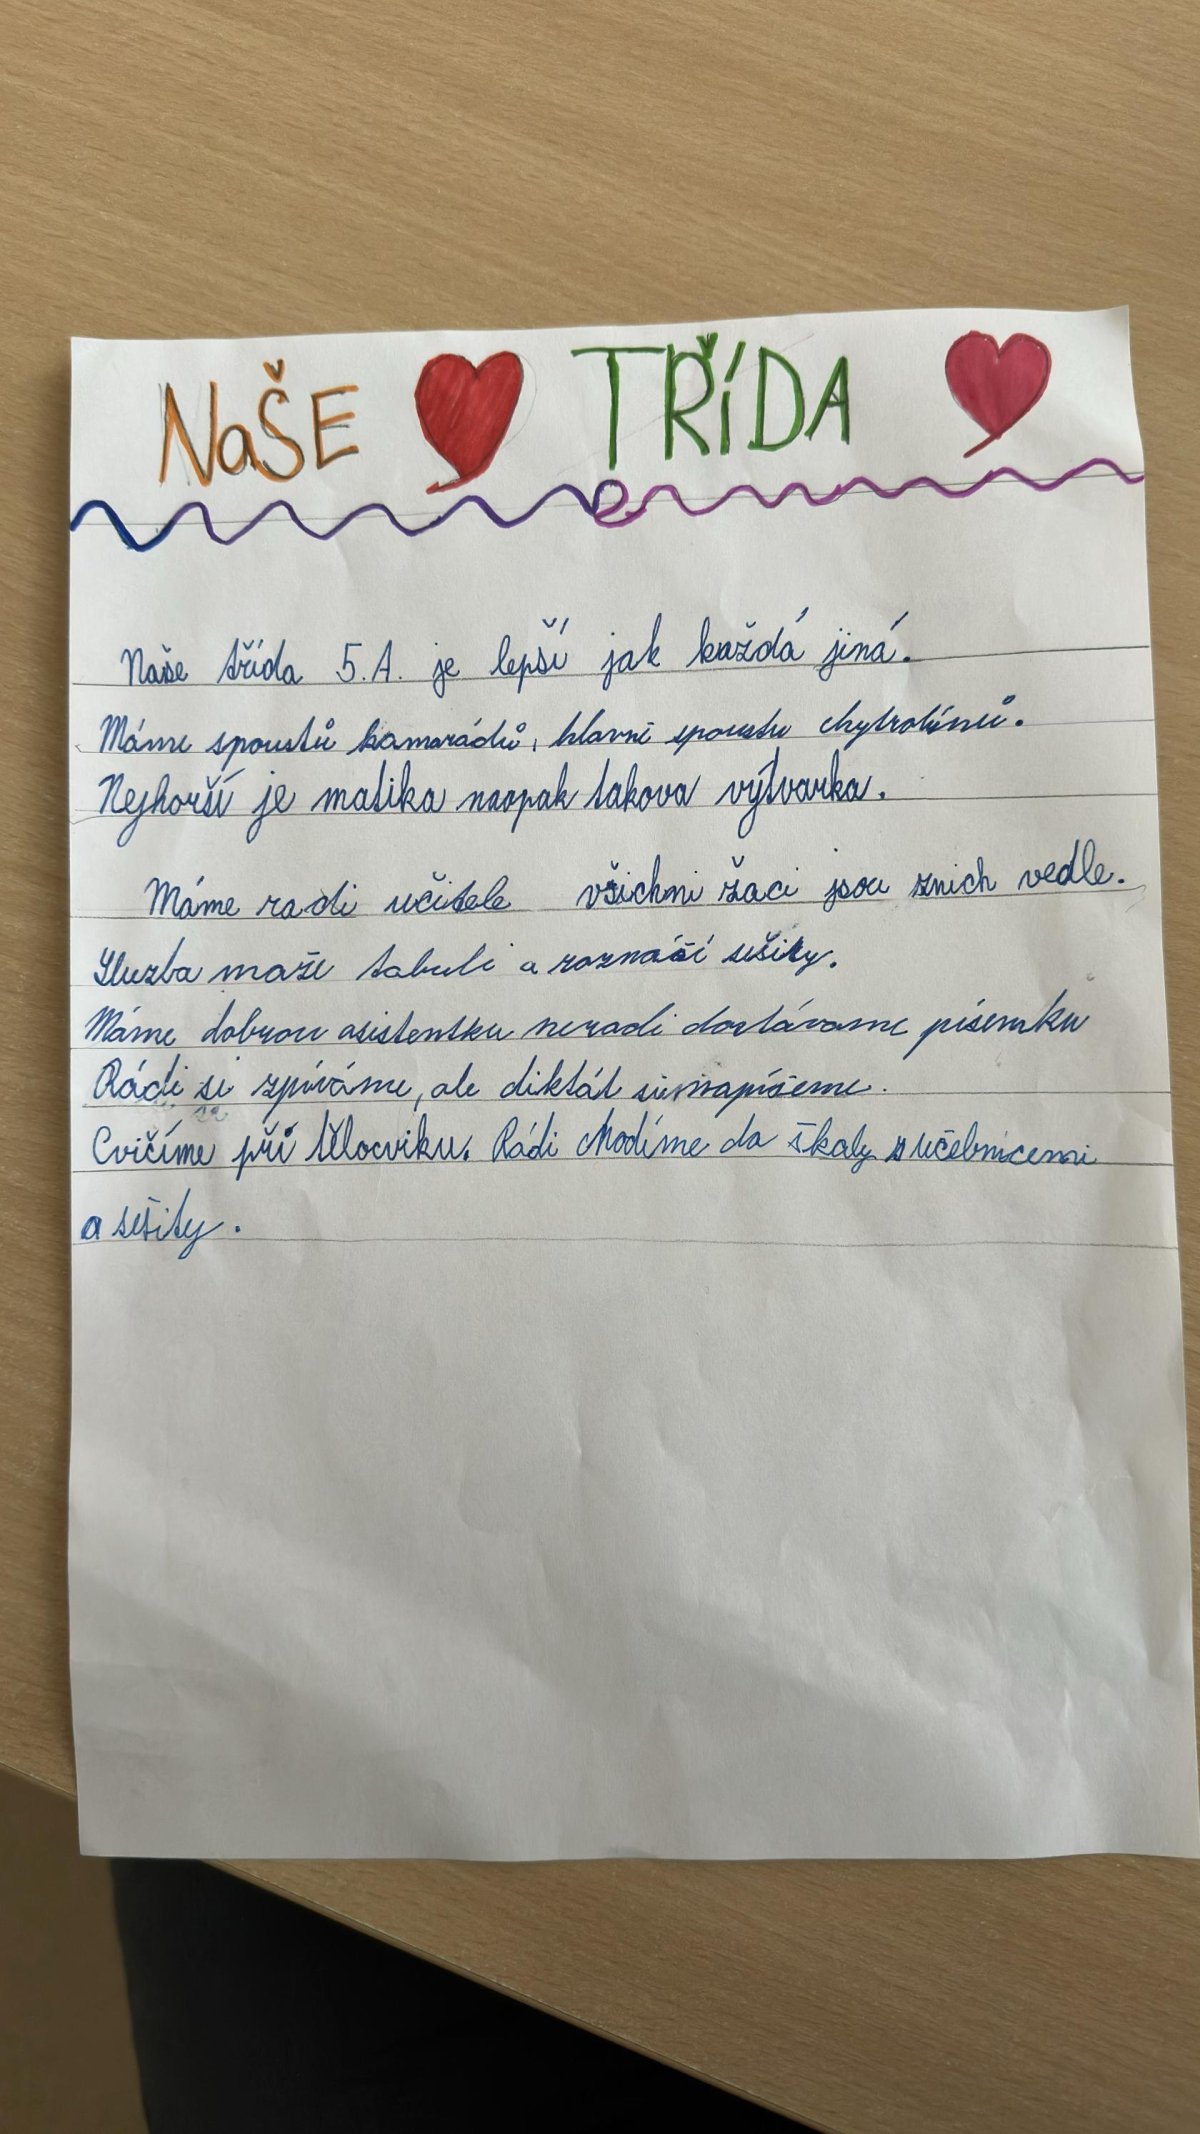 NaŠE TŘÍDA
Naše třída 5.A. je lepší jak každá jiná.
Máme spoustů kamarádů, hlavně spoustu chytrolínů.
Nejhorší je matika naopak takova výtvarka.
Máme radi učitele všichni žaci jsou znich vedle.
Služba maže tabuli a roznáší sešity.
Máme dobrou asistentku neradi dostáváme písemku
Rádi si zpíváme, ale diktát
Cvičíme při tělocviku. Rádi chodíme do školy s učebnicemi
a sešity.